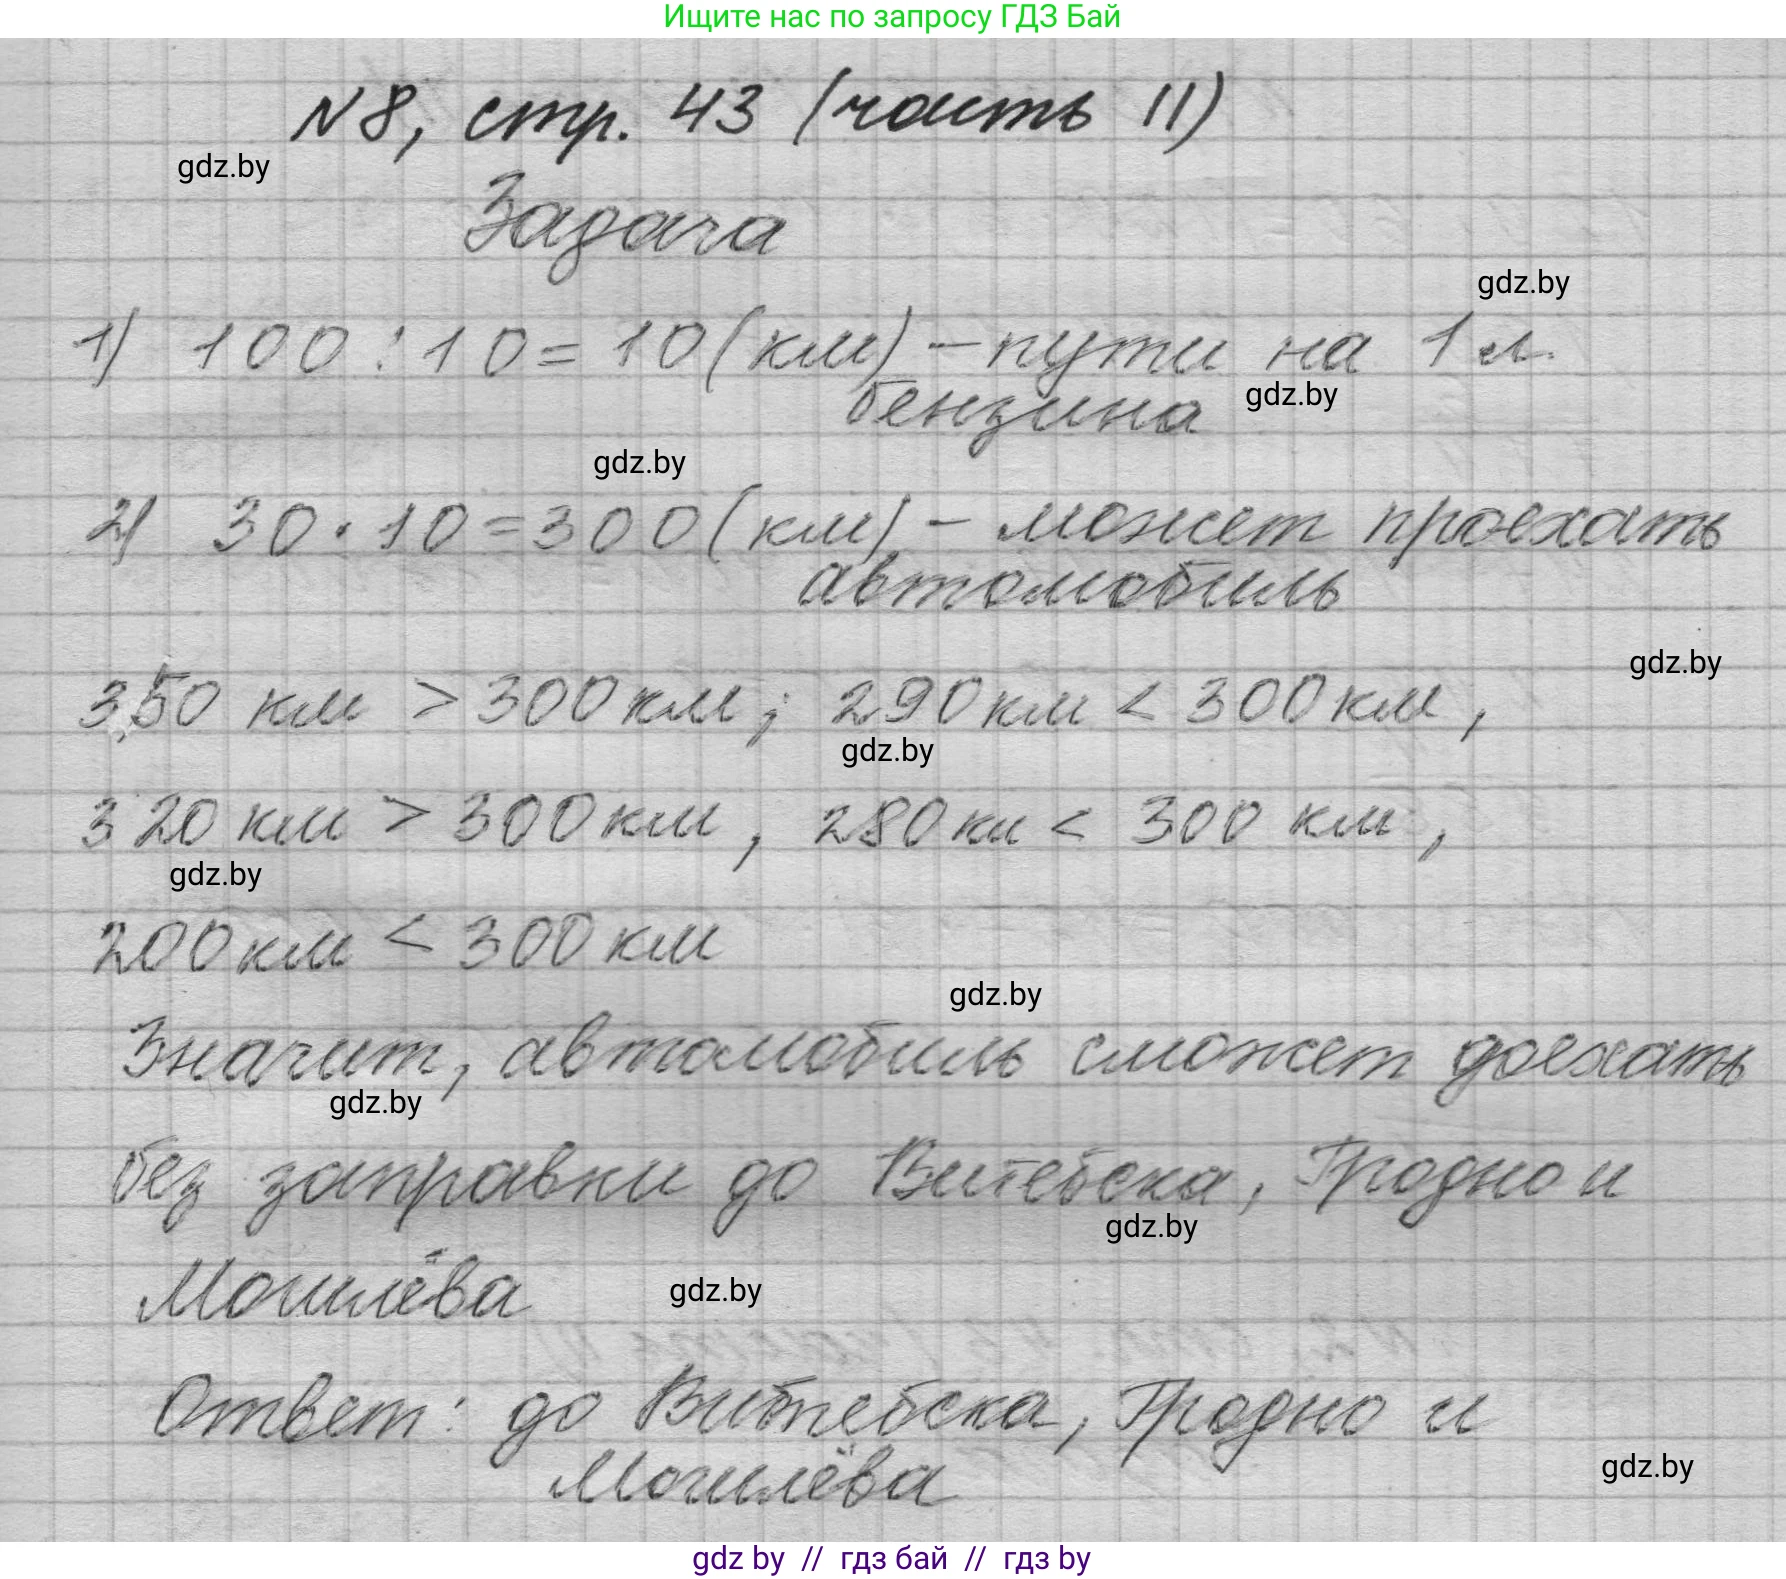 Ищите нас по запросу ГДЗ Бай
№8, стр. 43 (часть II)
gdz.by
Задача
gdz.by
1) 100 : 10 = 10 (км) - пути на 1 л.
бензина
gdz.by
gdz.by
2) 30 · 10 = 300 (км) - может проехать
автомобиль
gdz.by
350 км > 300 км; 290 км < 300 км,
gdz.by
320 км > 300 км, 280 км < 300 км,
gdz.by
200 км < 300 км
gdz.by
Значит, автомобиль сможет доехать
gdz.by
без заправки до Витебска, Гродно и
gdz.by
Могилёва
gdz.by
Ответ: до Витебска, Гродно и
Могилёва
gdz.by
gdz by // гдз бай // гдз by